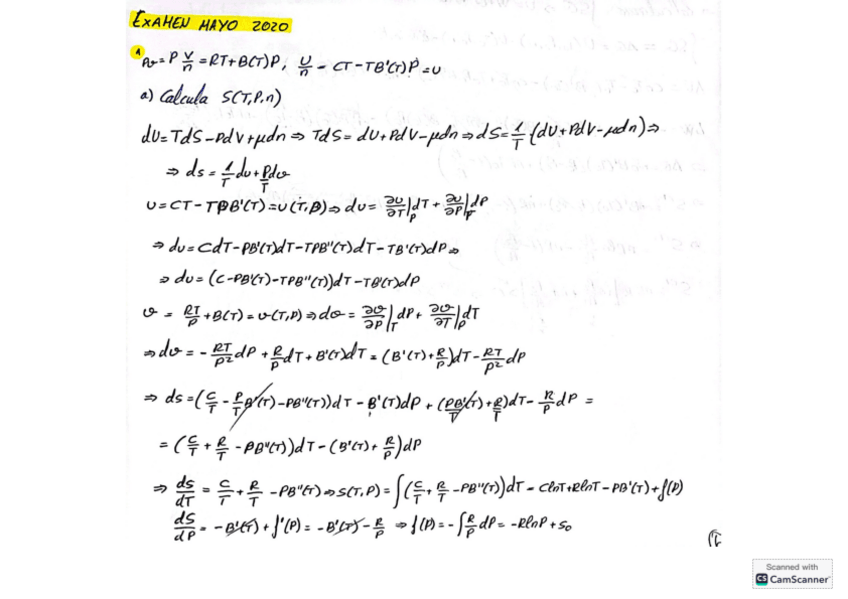 EXAMEN MAYO 2020
1 Pv = P V/n = RT + B(T)P, U/n = CT - TB'(T)P = u
a) Calcula S(T,P,n)
dU = TdS - PdV + μdn ⇒ TdS = dU + PdV - μdn ⇒ dS = 1/T {dU + PdV - μdn} ⇒
⇒ ds = 1/T du + P/T dv
u = CT - TPB'(T) = u(T,P) ⇒ du = ∂u/∂T|P dT + ∂u/∂P|T dP
⇒ du = CdT - PB'(T)dT - TPB''(T)dT - TB'(T)dP ⇒
⇒ du = (C - PB'(T) - TPB''(T))dT - TB'(T)dP
v = RT/P + B(T) = v(T,P) ⇒ dv = ∂v/∂P|T dP + ∂v/∂T|P dT
⇒ dv = - RT/P² dP + R/P dT + B'(T)dT = (B'(T) + R/P)dT - RT/P² dP
⇒ ds = (C/T - P/T B'(T) - PB''(T))dT - B'(T)dP + (PB'(T)/T + R/T)dT - R/P dP =
= (C/T + R/T - PB''(T))dT - (B'(T) + R/P)dP
⇒ ds/dT = C/T + R/T - PB''(T) ⇒ s(T,P) = ∫(C/T + R/T - PB''(T))dT = ClnT + RlnT - PB'(T) + f(P)
ds/dP = -B'(T) + f'(P) = -B'(T) - R/P ⇒ f(P) = -∫R/P dP = -RlnP + s₀
Scanned with
CS CamScanner